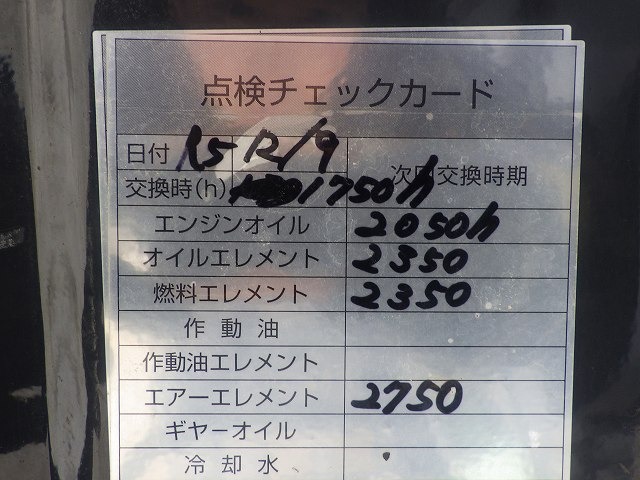 点検チェックカード
日付 15 12/9
交換時(h) 1750h 次回交換時期
エンジンオイル 2050h
オイルエレメント 2350
燃料エレメント 2350
作動油
作動油エレメント
エアーエレメント 2750
ギヤーオイル
冷却水